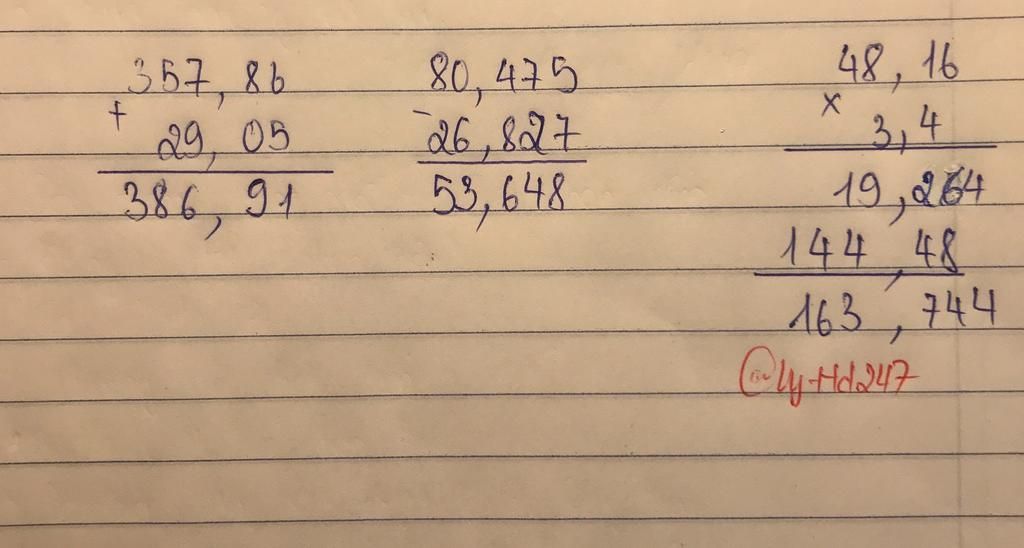 357,86
+
29,05
386,91
80,475
-
26,827
53,648
48,16
x
3,4
19,264
144,48
163,744
@Ly-Hd247